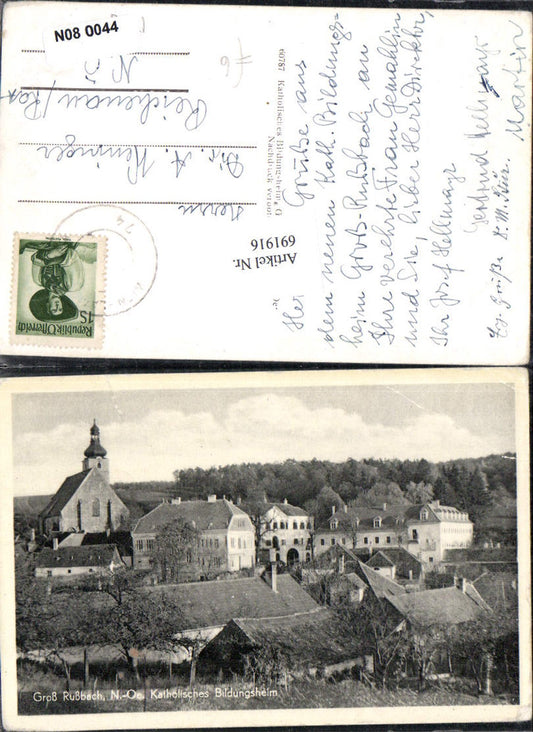 N08 0044
Grüße aus
dem neuen Kath. Bildungs-
heim Groß-Rußbach an
Ihre verehrte Frau Gemahlin
und Sie, lieber Herr Direktor,
Ihr Josef Hellmayr
Gertrud Hellmayr
Martin
Grüße
60787 Katholisches Bildungsheim, G
Nachdruck verbot
Artikel Nr.
691916
Herrn
Dir. A.
Reichenau/Rax
N. Ö.
1S
Republik Österreich
Groß Rußbach, N.-Oe. Katholisches Bildungsheim